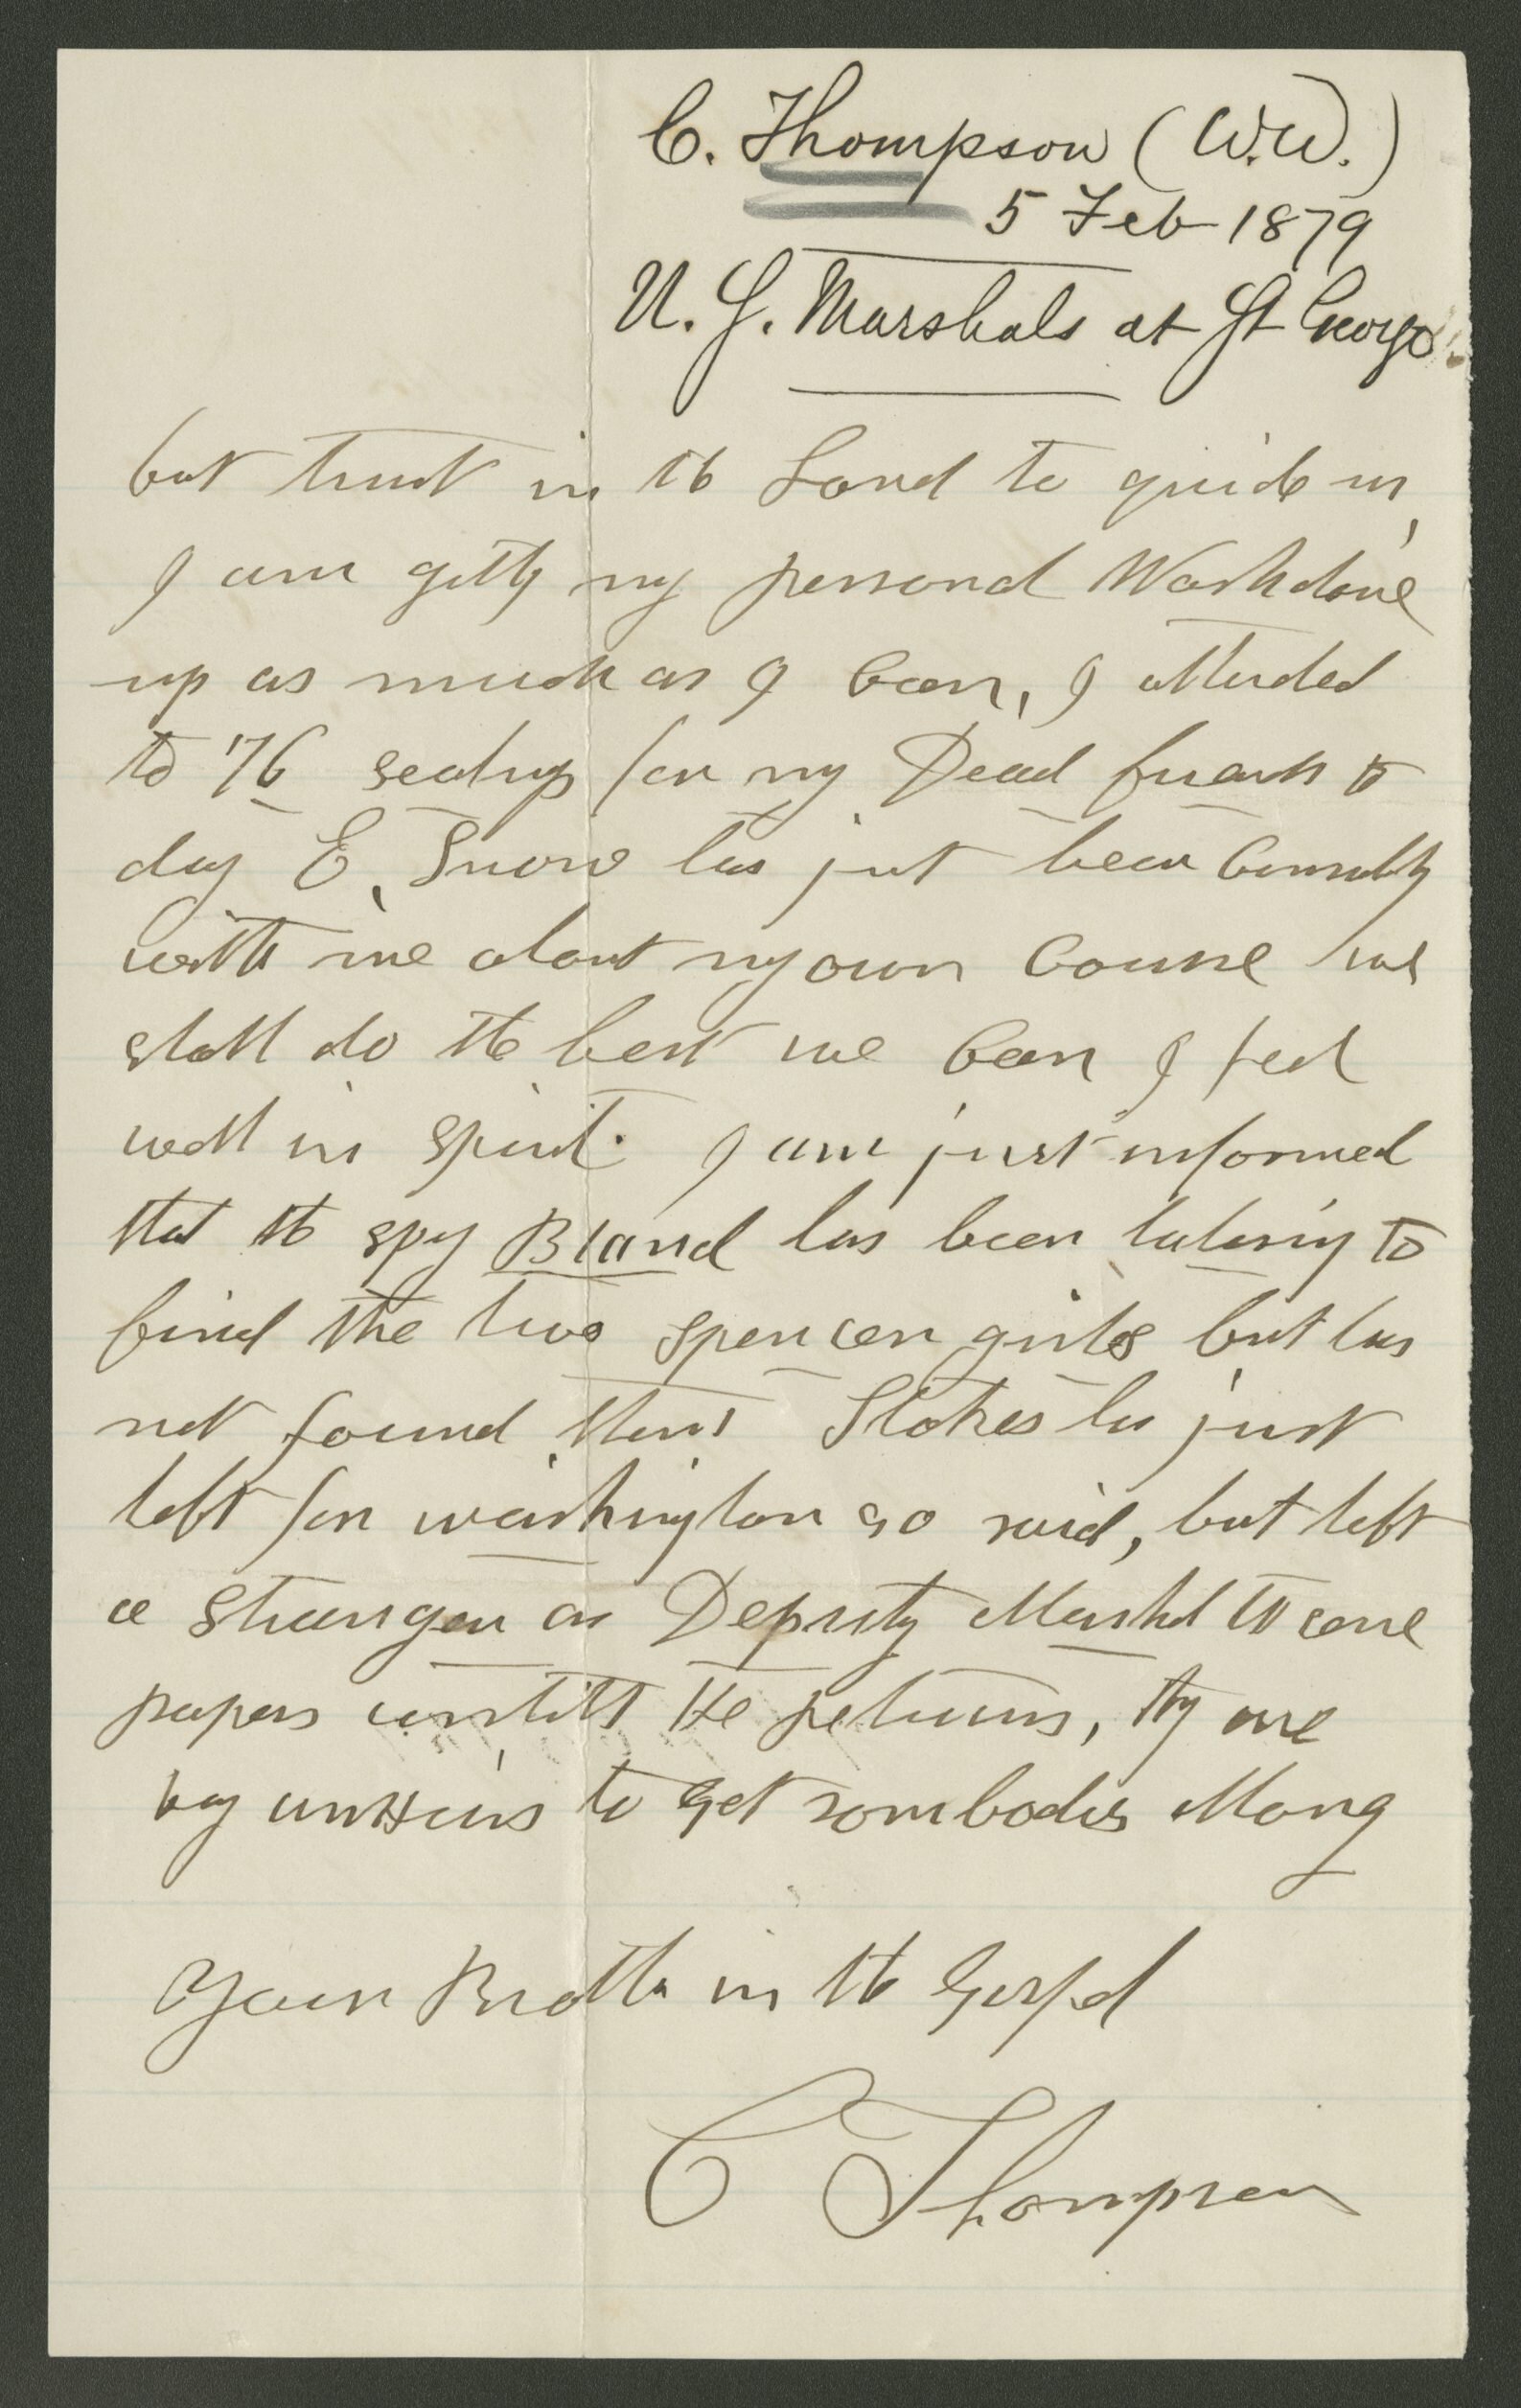 C. Thompson (W.W.)
5 Feb 1879
U.S. Marshals at St George.
but trust in the Lord to guide us,
I am getting my personal Work done
up as much as I Can, I attended
to 76 sealings for my Dead friends to
day E. Snow has just been Consulting
with me about my own Course we
shall do the best we Can I feel
well in spirit. I am just informed
that the spy Bland has been to
find the two spencer girls but has
not found them Stokes has just
left for washington so said, but left
a Stranger as Deputy Marshal to serve
papers untill He returns, they are
vry to get sombodis Along
Your Brother in the Gospel
C Thompson